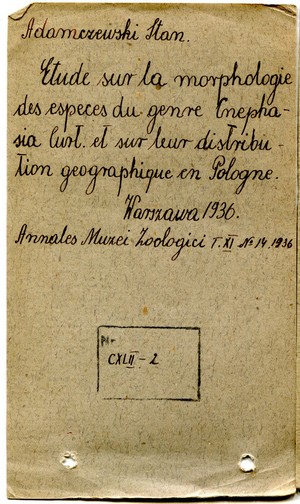 Adamczewski Stan.
Etude sur la morphologie
des especes du genre Cnepha-
sia Curt. et sur leur distribu-
tion geographique en Pologne.
Warszawa 1936.
Annales Muzei Zoologici T. XI No 14. 1936
Nr
CXLII - 2